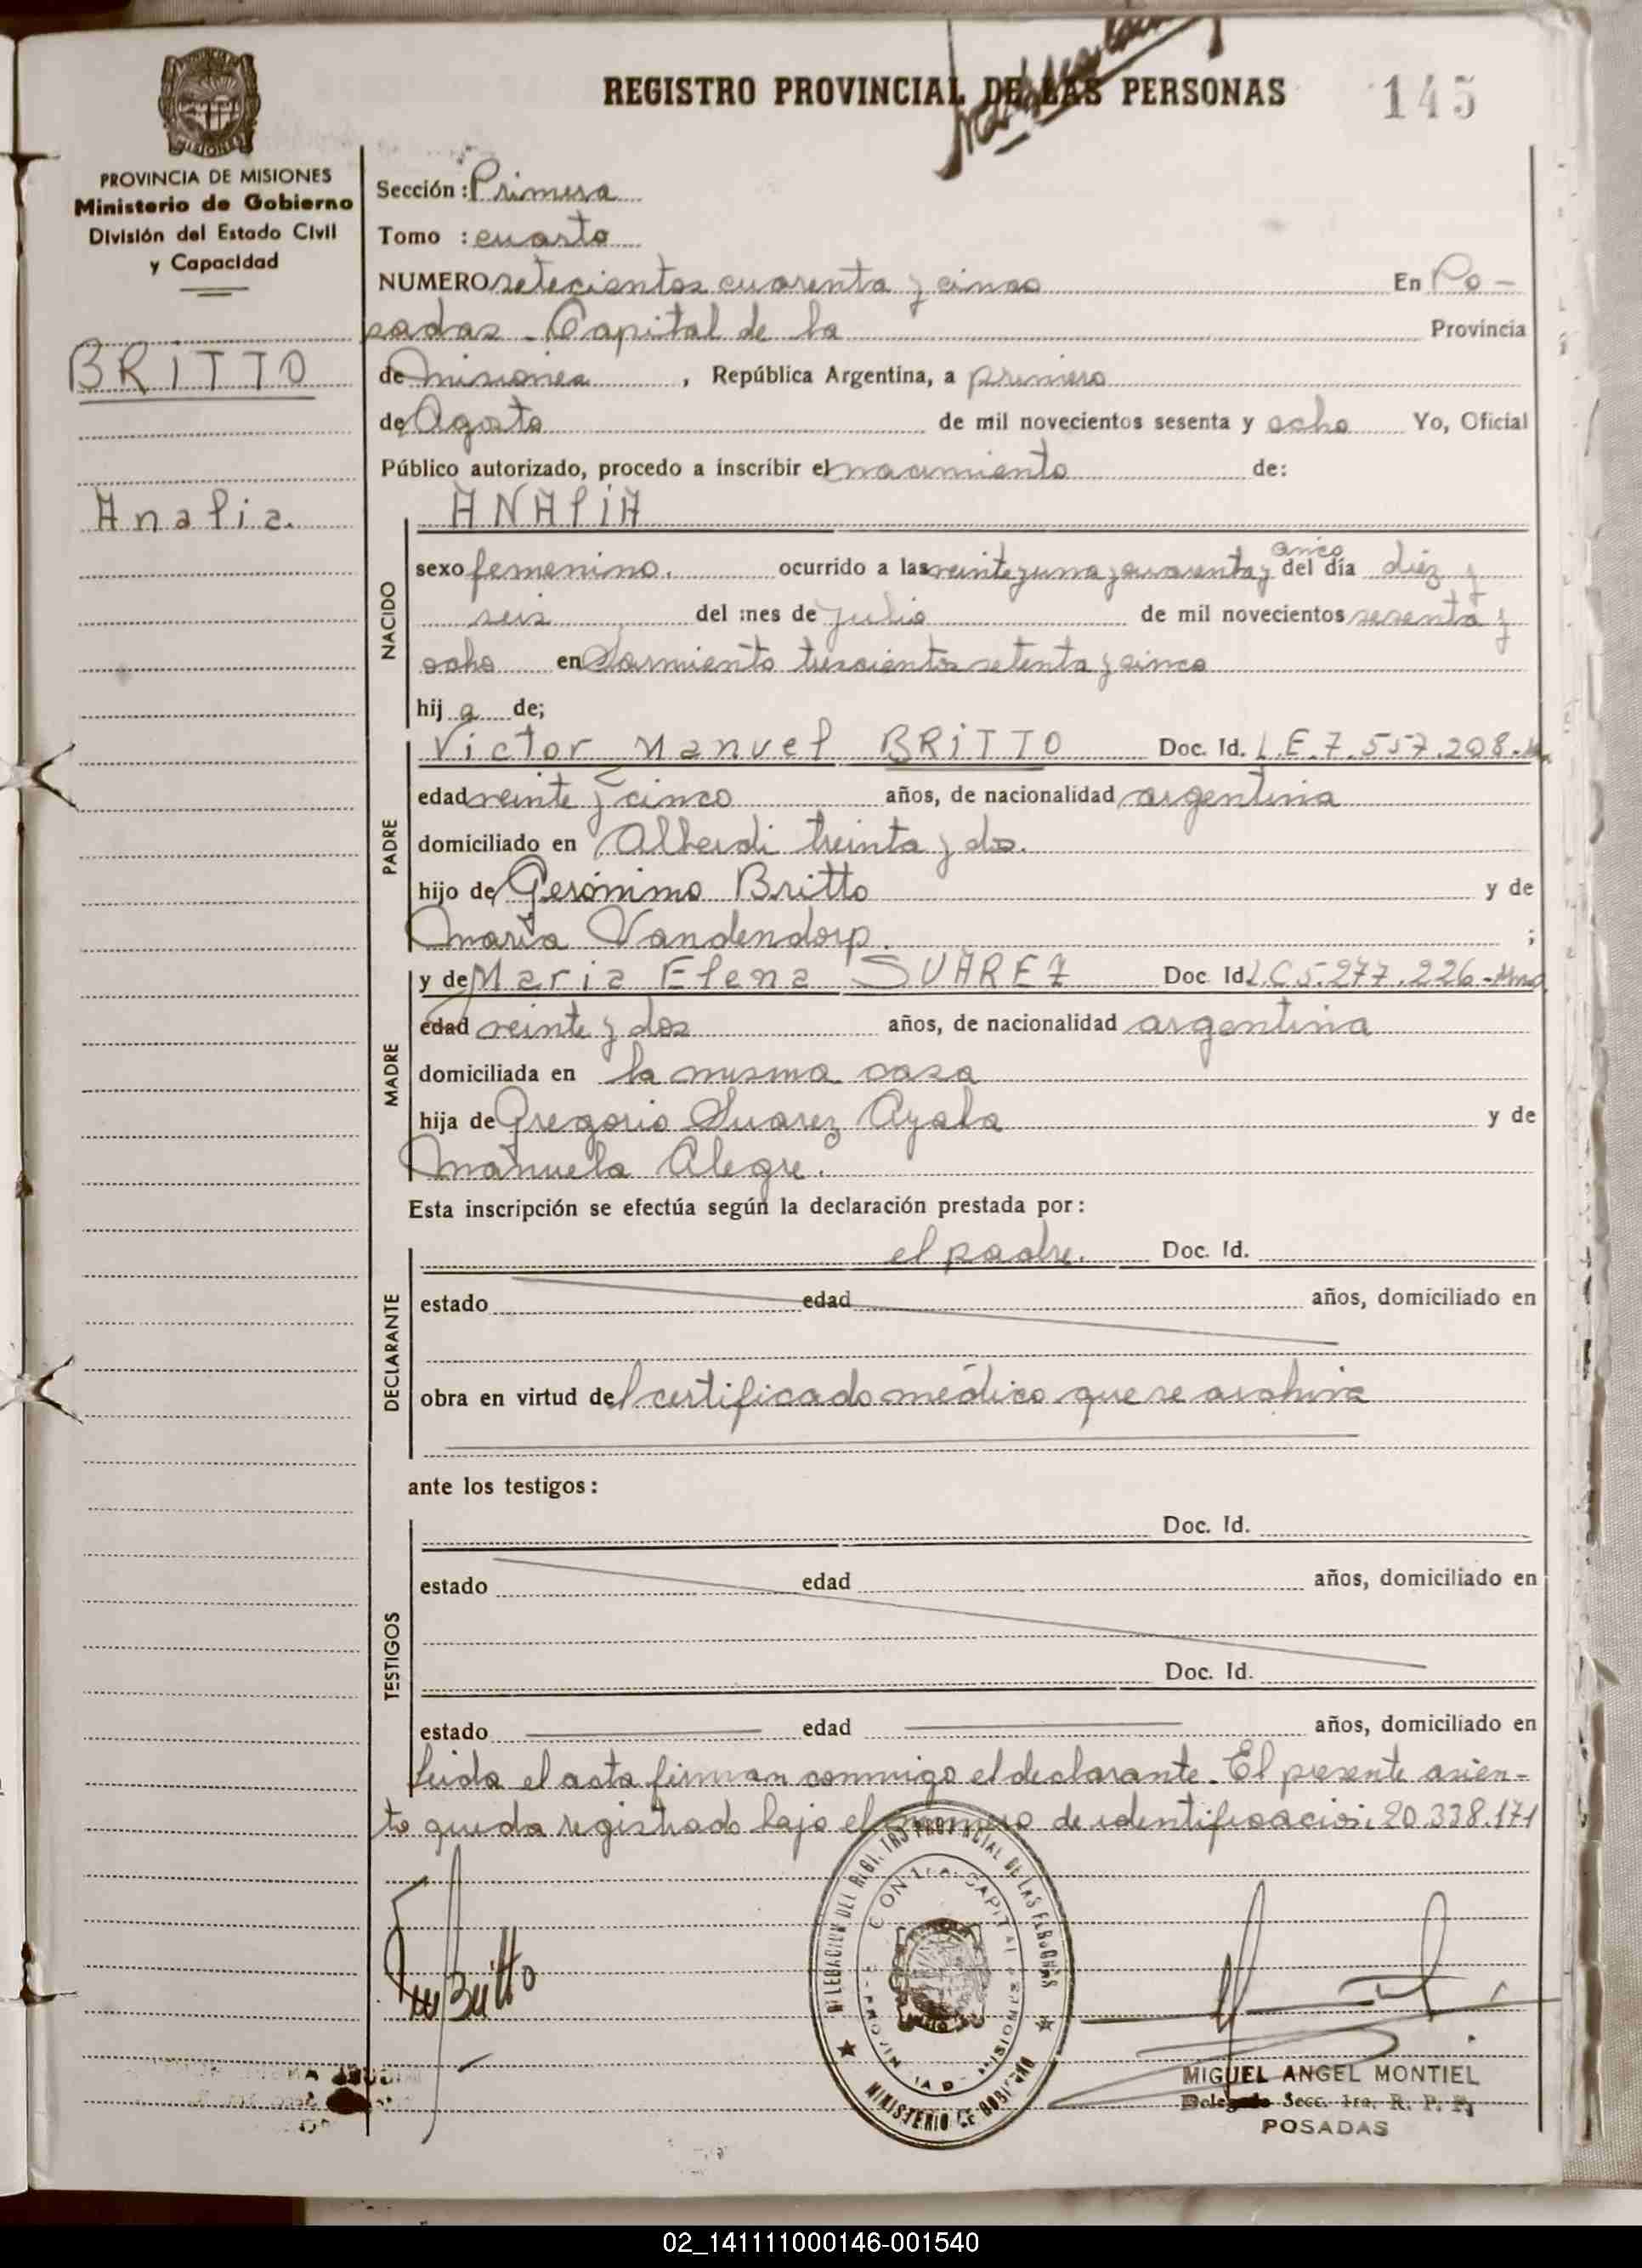 REGISTRO PROVINCIAL DE LAS PERSONAS 145
PROVINCIA DE MISIONES
Ministerio de Gobierno
División del Estado Civil
y Capacidad
BRITTO
Analia.
Sección: Primera
Tomo : cuarto
NUMERO setecientos cuarenta y cinco En Po-
sadas - Capital de la Provincia
de Misiones, República Argentina, a primero
de Agosto de mil novecientos sesenta y ocho Yo, Oficial
Público autorizado, procedo a inscribir el nacimiento de:
ANALIA
NACIDO
cinco
sexo femenino. ocurrido a las veinte y una y cuarenta y del día diez y
seis del mes de Julio de mil novecientos sesenta y
ocho en Sarmiento trescientos setenta y cinco
hija de;
PADRE
Victor Manuel BRITTO Doc. Id. L.E.7.557.208.
edad veinte y cinco años, de nacionalidad argentina
domiciliado en Alberdi treinta y dos.
hijo de Gerónimo Britto y de
María Vandendorp. ;
MADRE
y de Maria Elena SUAREZ Doc Id. L.C 5.277.226-
edad veinte y dos años, de nacionalidad argentina
domiciliada en la misma casa
hija de Gregorio Suarez Ayala y de
Manuela Alegre.
Esta inscripción se efectúa según la declaración prestada por:
DECLARANTE
el padre. Doc. Id.
estado edad años, domiciliado en
obra en virtud del certificado médico que se archiva
ante los testigos:
TESTIGOS
Doc. Id.
estado edad años, domiciliado en
Doc. Id.
estado edad años, domiciliado en
Leida el acta firman conmigo el declarante. El presente asien-
to queda registrado bajo el numero de identificación: 20.338.171
Britto
MINISTERIO DE GOBIERNO
MIGUEL ANGEL MONTIEL
Delegado Secc. 1ra. R. P. P.
POSADAS
02_141111000146-001540